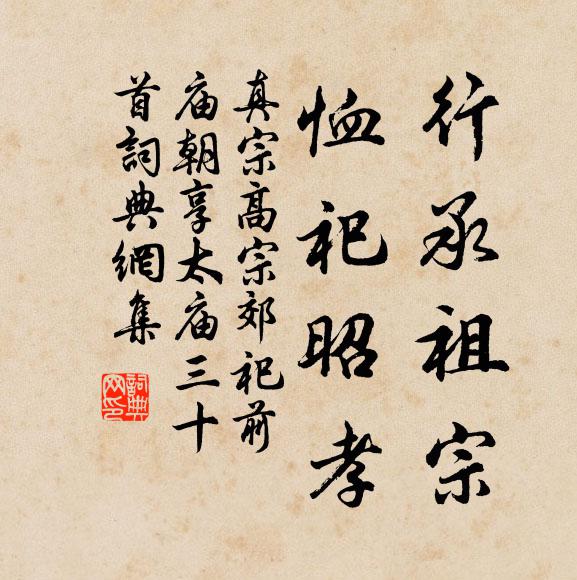 行承祖宗
恤祀昭孝
真宗高宗郊祀前
庙朝享太庙三十
首詞典網集
詞典网印